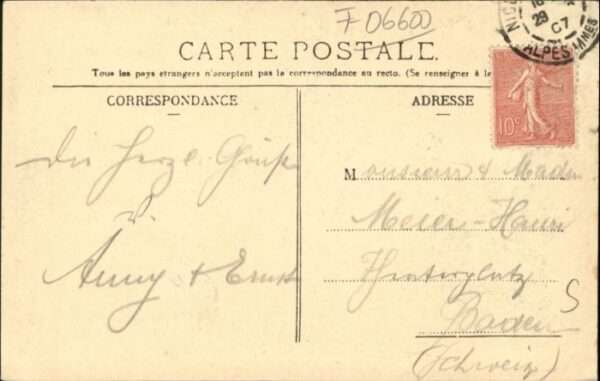 F 06600
28
07
ALPES
CARTE POSTALE.
Tous les pays etrangers n'acceptent pas la correspondance au recto. (Se renseigner à le
CORRESPONDANCE
ADRESSE
10c
Die Herzl. Grüße
v.
Anny & Ernst
Monsieur & Madm
Meier-Hauri
Hinterplatz
Baden
S
(Schweiz)